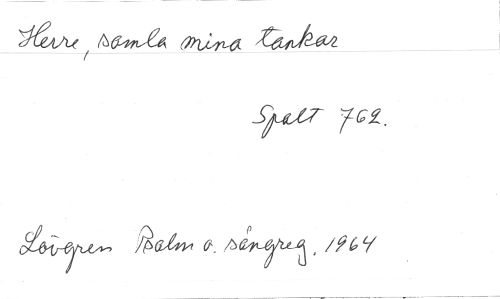 Herre, samla mina tankar
Spalt 762.
Lövgren Psalm o. sångreg. 1964